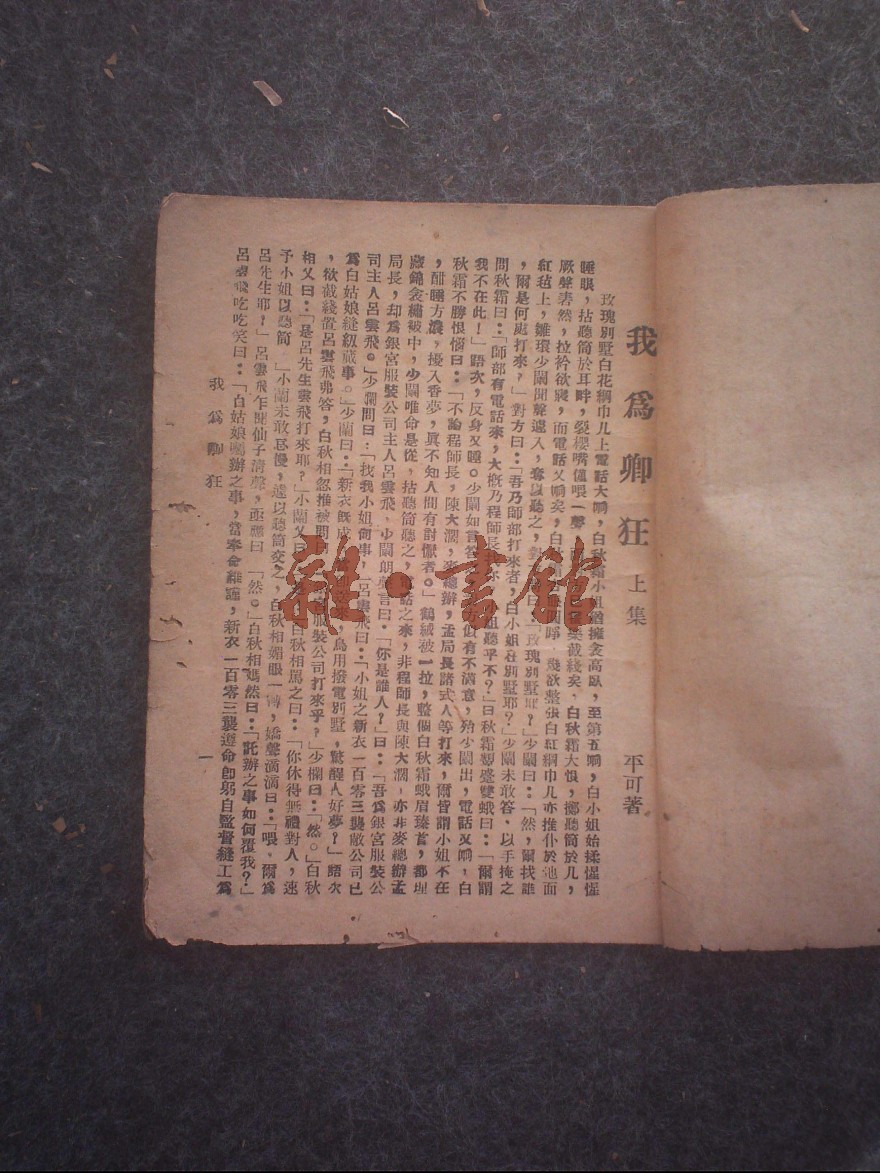 我爲卿狂 上集
平可著
玫瑰別墅白花綢巾几上電話大鳴,白秋霜小姐猶擁衾高臥,至第五鳴,白小姐始揉惺惺
睡眼,拈聽筒於耳畔,裂櫻嘴僅喂一聲,截綫矣,白秋霜大恨,擲聽筒於几,
厥聲砉然,拉衾欲寢,而電話又鳴矣,白幾欲整張白紅綢巾几亦推仆於地面
紅毡上,雛環少闌聞聲遽入,奪以聽之,玫瑰別墅耶?」少闌曰:「然,爾找誰
,爾是何處打來?」對方曰:「吾乃師部打來者,白小姐在別墅耶?」少闌未敢答,以手掩之
問秋霜曰:「師部有電話來,大概乃程師長姐聽乎不?」白秋霜蹙雙蛾曰:「爾謂
我不在此!」語次,反身又睡。少闌如言答似有不滿意,殆少闌出,電話又鳴,白
秋霜不勝恨惱曰:「不論程師長,陳大濶,麥總辦,孟局長諸式人等打來,爾皆謂小姐不在
,酣睡方濃,擾入香夢,眞不知人間有討厭者。」鶴絨被一拉,整個白秋霜蛾眉瑧首,都埋
藏錦衾繡被中,少闌唯命是從,拈聽筒聽之,電話之來,非程師長與陳大濶,亦非麥總辦孟
局長,却爲銀宮服裝公司主人呂雲飛,少闌朗聲言曰:「你是誰人?」曰:「吾爲銀宮服裝公
司主人呂雲飛。」少闌問曰:「找我小姐何事,」呂雲飛曰:「小姐之新衣一百零三襲敝公司已
爲白姑娘縫紉蕆事。」少蘭曰:「新衣旣成,烏用撥電別墅,驚醒人好夢?」語次
,欲截綫置呂雲飛弗答,白秋相忽推被問服裝公司打來乎?」少欄曰:「然。」白秋
相又曰:「是呂先生雲飛打來耶?」小蘭又曰白秋相罵之曰:「你休得無禮對人,速
予小姐以聽筒。」小蘭未敢怠慢,遽以聽筒交之,白秋相媚眼一轉,嬌聲滴滴曰:「喂,爾爲
呂先生耶?」呂雲飛乍聞仙子清聲,亟應曰:「然。」白秋相嫣然曰:「託辦之事如何覆我?」
呂雲飛吃吃笑曰:「白姑娘囑辦之事,當奉命維謹,新衣一百零三襲遵命卽躬自監督縫工爲
我爲卿狂
一
雜·書館